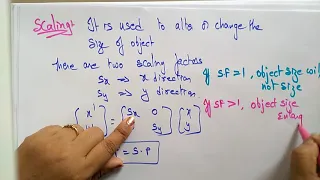 Scaling:- It is used to alter or change the
size of object
There are two scaling factors
Sx ⇒ x direction
Sy ⇒ y direction
If SF = 1, object size will
not size
If SF > 1, object size
Enlarg
[x'] = [Sx 0] [x]
Sy] [y]
= S.P